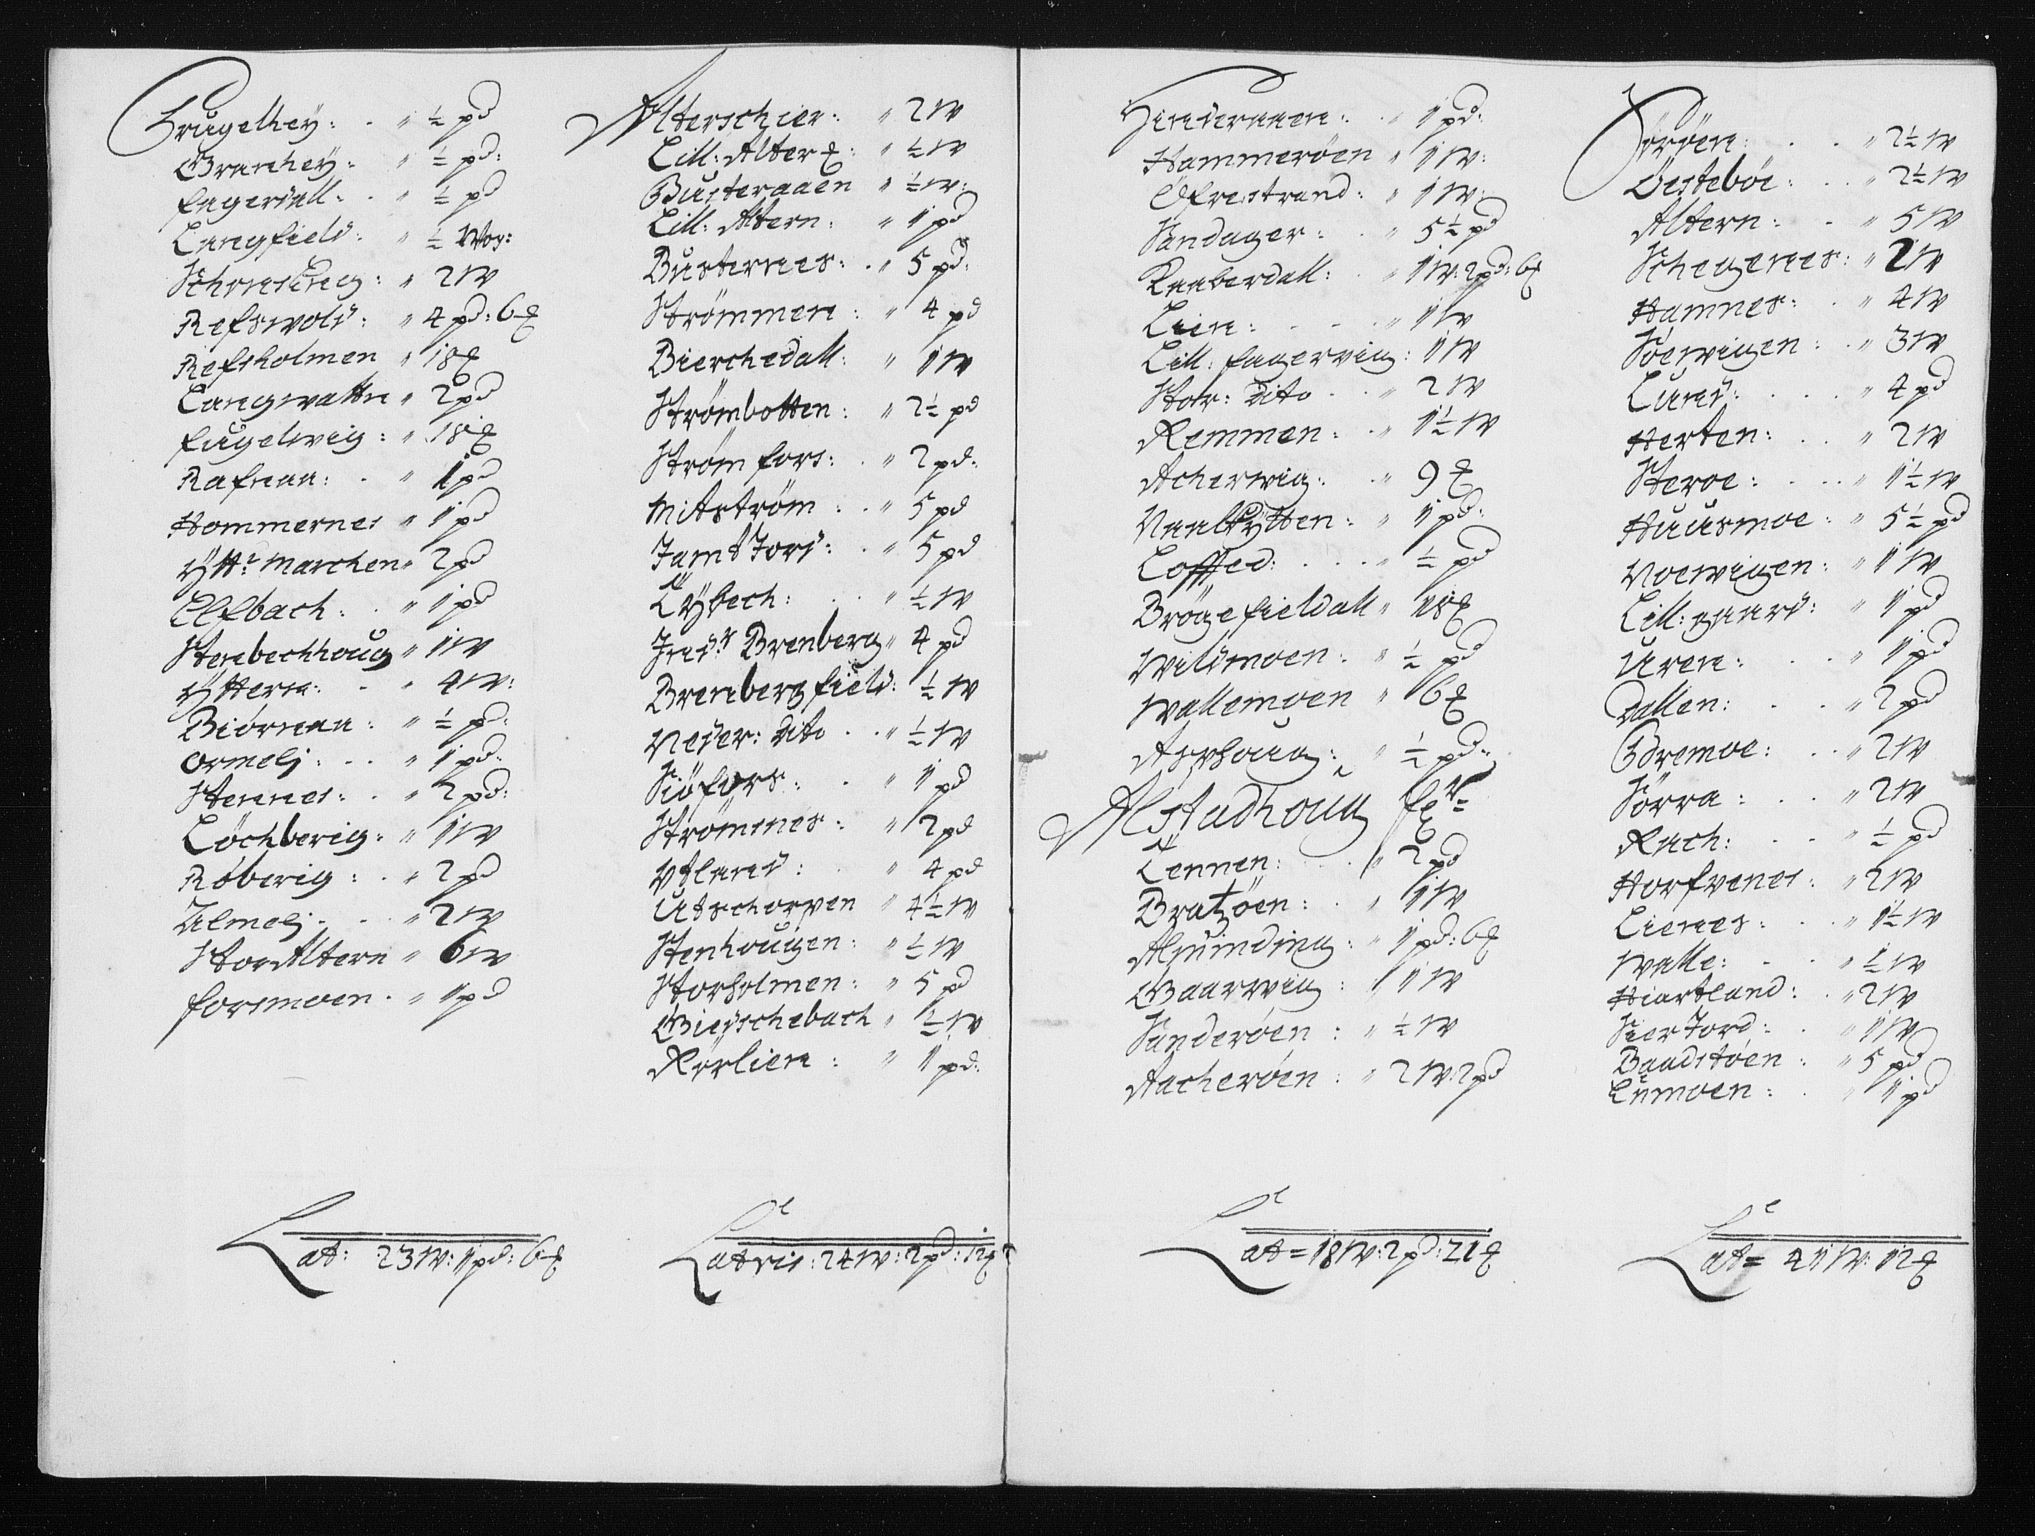 Brugelhey: . " ½ pd
Granhey: " ½ pd:
fagerdall: . " ½ pd
Langfield: " ½ Wog:
Schonseng: " 2 W
Refswold: " 4 pd: 6 ℔
Refsholmen " 18 ℔
Langwattn " 2 pd
fugelvig: " 18 ℔
Rafnaa: . " 1 pd
Hammernes " 1 pd
Ytt: marchen " 2 pd
Elfbach: . " 1 pd
Stenbechhoug " 1 W
Yttern: . " 4 W:
Biörnaa: " ½ pd:
ormelj: . . " 1 pd:
Stennes: . " 2 pd:
Löchberig: " 1 W
Röberig: . " 2 pd
Ulmelj . . " 2 W
StorAltern " 6 W
forsmoen . " 1 pd
Lat: 23 W: 1 pd: 6 ℔
Alterschier: " 2 W
Lill: Alter : " ½ W
Gusteraaen " ½ W:
Lill: Altern: " 1 pd
Busternes: . " 5 pd:
Strömmen: " 4 pd
Bierchedall: " 1 W
Strömbotten: " 2½ pd
Strömfors: . " 2 pd:
Mitström: . " 5 pd
JamtJord: . " 5 pd
Lÿbech: . . " ½ W
Indr Brenberg " 4 pd
Brenbergfield: ½ W
Neder: Dito . . " ½ W
Siöfors: . . " 1 pd
Strömnes: " 2 pd
Vtland: . " 4 pd
Utschorpen " 4½ W
Stenhougen: " ½ W
Storholmen: " 5 pd
Gierschebach " ½ W
Rörlien: " 1 pd:
Latris: 24 W: 2 pd: 12 ℔
Hinderaaen: . " 1 pd:
Hammeröen " 1 W:
Ofrestrand: " 1 W:
Sandager: . " 5½ pd
Raaberdall: " 1 W: 2 pd: 6 ℔
Lien: . . . " 1 W
Lill: fagervig: 1 W
Stor: Dito . . " 2 W
Remmen: . " 1½ W
Acherwig: . " 9 ℔
Naalÿtten: " 1 pd:
Loffed: . . . " ½ pd
Brögefieldall " 18 ℔
Wildmoen: . " ½ pd
Wallemoen " 6 ℔
Asphoug: . " ½ pd:
Alstadhoug
Tennen: . . " 2 pd
Bratzöen: . " 1 W
Alminding: " 1 pd: 6 ℔
Gaarwig: " 1 W
Sanderöen: " ½ W
Aacheröen: " 2 W: 2 pd
Lat = 18 W: 2 pd: 21 ℔
Söröen: . . " 2½ W
Oesteböe: . . " 2½ W
Altern: . . " 5 W
Schegenes: " 2 W
Hamnes: . " 4 W
Söewigen: . " 3 W
Lund: . . . " 4 pd
Herten: . . " 2 W
Steroe: . . . " 1½ W
Huusmoe: " 5½ pd
Noewigen: " 1 W
Lill: gaard: " 1 pd
Uren: . . " 1 pd
Dallen: . . " 2 pd
Bremoe: . . " 2 W
Sörra: . . " 2 W
Rach: . . " ½ pd
Horfvenes: " 2 W
Lienes: . . " 1½ W
Walle: . . " ½ W
Hiartland: . " 2 W
SierJord: . " 1 W
Baadstöen: " 5 pd
Lumoen: . " 1 pd
Lat = 41 W: 12 ℔